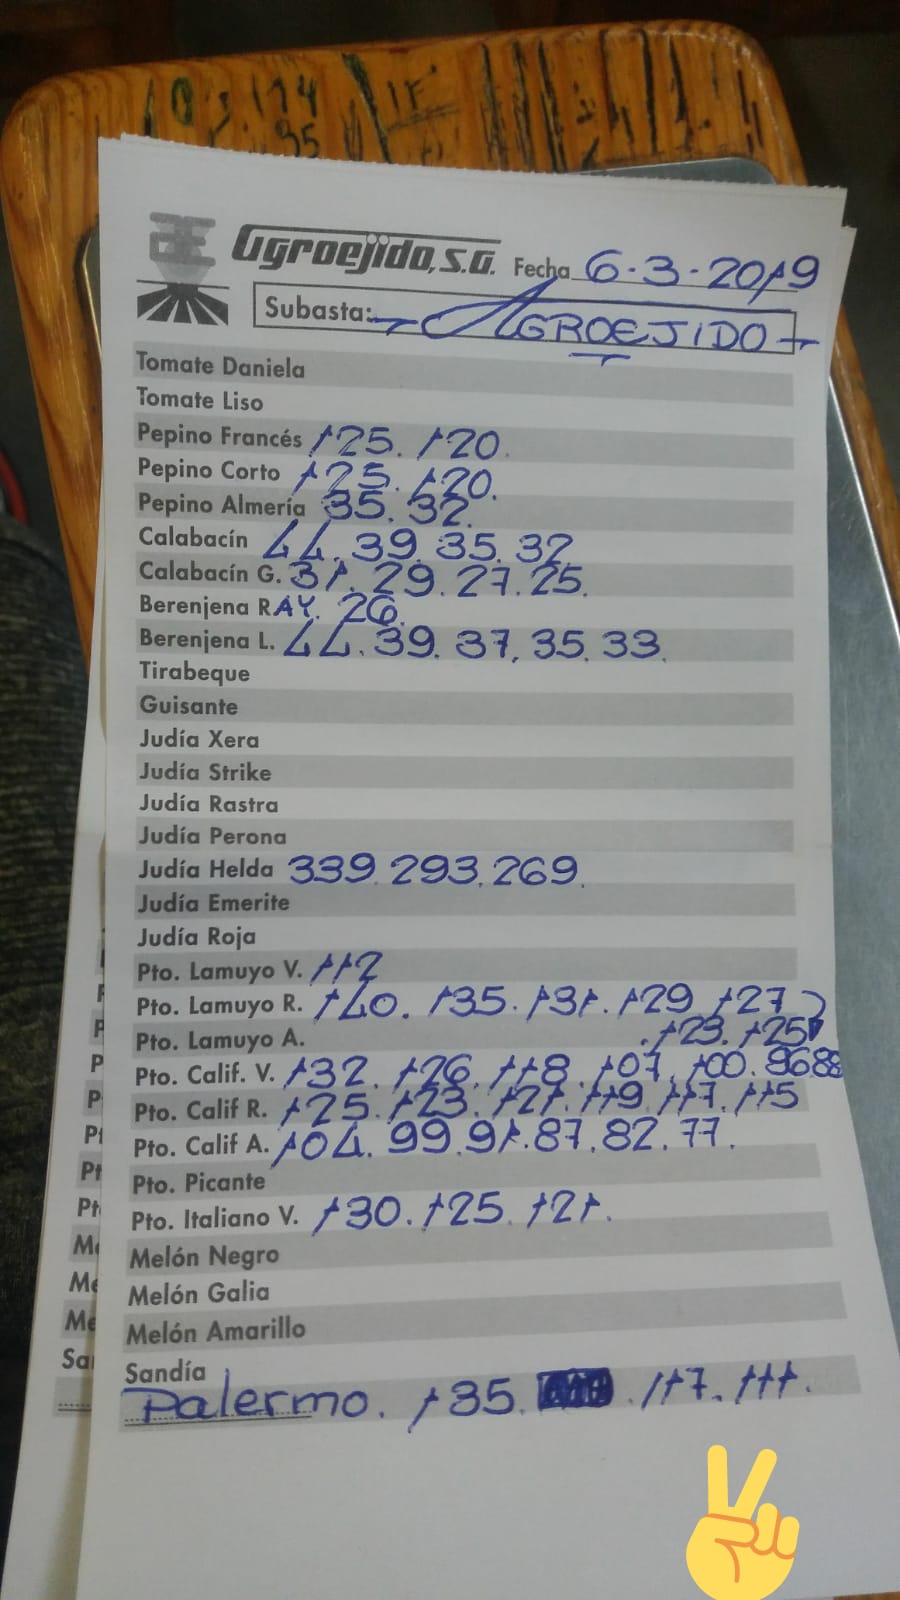 Agroejido, S.A. Fecha 6-3-2019
Subasta: AGROEJIDO
Tomate Daniela
Tomate Liso
Pepino Francés 125. 120.
Pepino Corto 125. 120.
Pepino Almería 35. 32.
Calabacín 44. 39. 35. 32
Calabacín G. 31. 29. 27. 25.
Berenjena RAY. 26.
Berenjena L. 44. 39. 37. 35. 33.
Tirabeque
Guisante
Judía Xera
Judía Strike
Judía Rastra
Judía Perona
Judía Helda 339. 293. 269.
Judía Emerite
Judía Roja
Pto. Lamuyo V. 112
Pto. Lamuyo R. 140. 135. 131. 129 127
Pto. Lamuyo A. .123. 125
Pto. Calif. V. 132. 126. 118. 107. 100. 96.88
Pto. Calif R. 125. 123. 121. 119. 117. 115
Pto. Calif A. 104. 99. 91. 87. 82. 77.
Pto. Picante
Pto. Italiano V. 130. 125. 121.
Melón Negro
Melón Galia
Melón Amarillo
Sandía
Palermo. 135. . 117. 111.